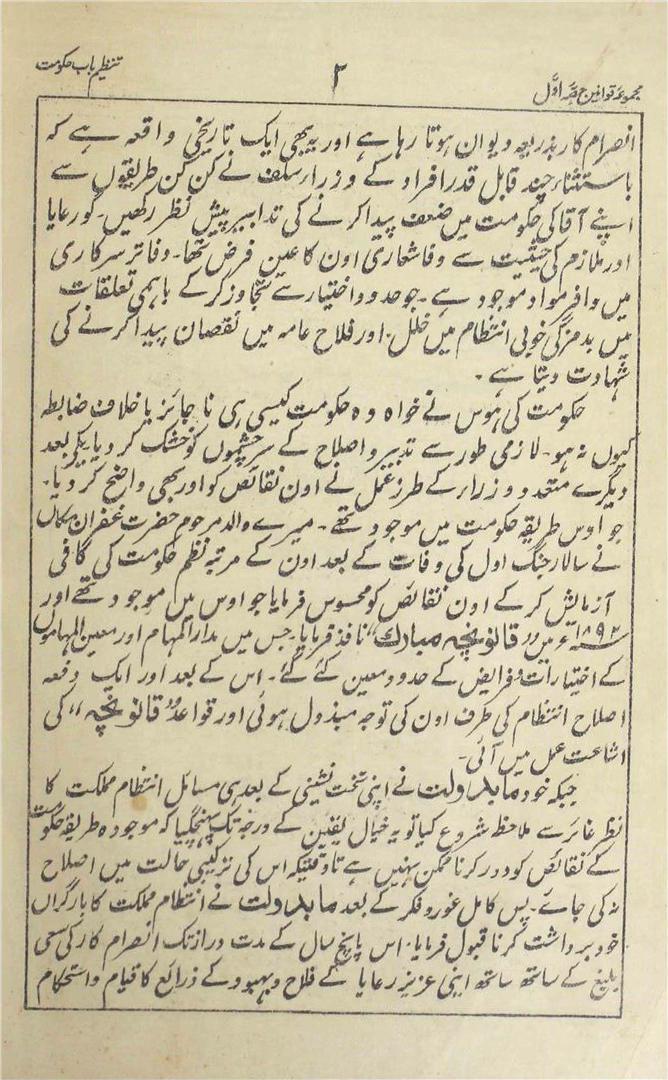 تنظیم باب حکومت
۲
مجموعہ قوانین حصہ اوّل
انصرام کار بذریعہ دیوان ہوتا رہا ہے اور یہ بھی ایک تاریخی واقعہ ہے کہ
باستثناء چند قابل قدر افراد کے وزراء سلف نے کن کن طریقوں سے
اپنے آقا کی حکومت میں ضعف پیدا کرنے کی تدابیر پیش نظر رکھیں۔ گو رعایا
اور ملازم کی حیثیت سے وفا شعاری اون کا عین فرض تھا۔ دفاتر سرکاری
میں وافر مواد موجود ہے۔ جو حدود اختیار سے تجاوز کر کے باہمی تعلقات
میں بدمزگی خوبی انتظام میں خلل۔ اور فلاح عامہ میں نقصان پیدا کرنے کی
شہادت دیتا ہے۔
حکومت کی ہوس نے خواہ وہ حکومت کیسی ہی نا جائز یا خلاف ضابطہ
کیوں نہ ہو۔ لازمی طور سے تدبیر و اصلاح کے سرچشموں کو خشک کر دیا یکے بعد
دیگرے متعدد وزراء کے طرز عمل نے اون نقائص کو اور بھی واضح کر دیا۔
جو اوس طریقہ حکومت میں موجود تھے۔ میرے والد مرحوم حضرت غفران مکاں
نے سالار جنگ اول کی وفات کے بعد اون کے مرتبہ نظم حکومت کی کافی
آزمایش کر کے اون نقائص کو محسوس فرمایا جو اوس میں موجود تھے اور
سنہ ۱۸۹۲ء میں ”قانونچہ مبارک“ نافذ فرمایا۔ جس میں مدار المہام اور معین المہاموں
کے اختیارات و فرایض کے حدود معین کئے گئے۔ اس کے بعد اور ایک دفعہ
اصلاح انتظام کی طرف اون کی توجہ مبذول ہوئی اور قواعد ”قانونچہ“ کی
اشاعت عمل میں آئی۔
جبکہ خود مابدولت نے اپنی تخت نشینی کے بعد ہی مسائل انتظام مملکت کا
نظر غائر سے ملاحظہ شروع کیا تو یہ خیال یقین کے درجہ تک پہنچ گیا کہ موجودہ طریقہ حکومت
کے نقائص کو دور کرنا ممکن نہیں ہے تاوقتیکہ اس کی ترکیبی حالت میں اصلاح
نہ کی جائے۔ پس کامل غور و فکر کے بعد مابدولت نے انتظام مملکت کا بار گراں
خود برداشت کرنا قبول فرمایا۔ اس پانچ سال کے مدت دراز تک انصرام کار کی سعی
بلیغ کے ساتھ ساتھ اپنی عزیز رعایا کے فلاح و بہبود کے ذرائع کا قیام و استحکام